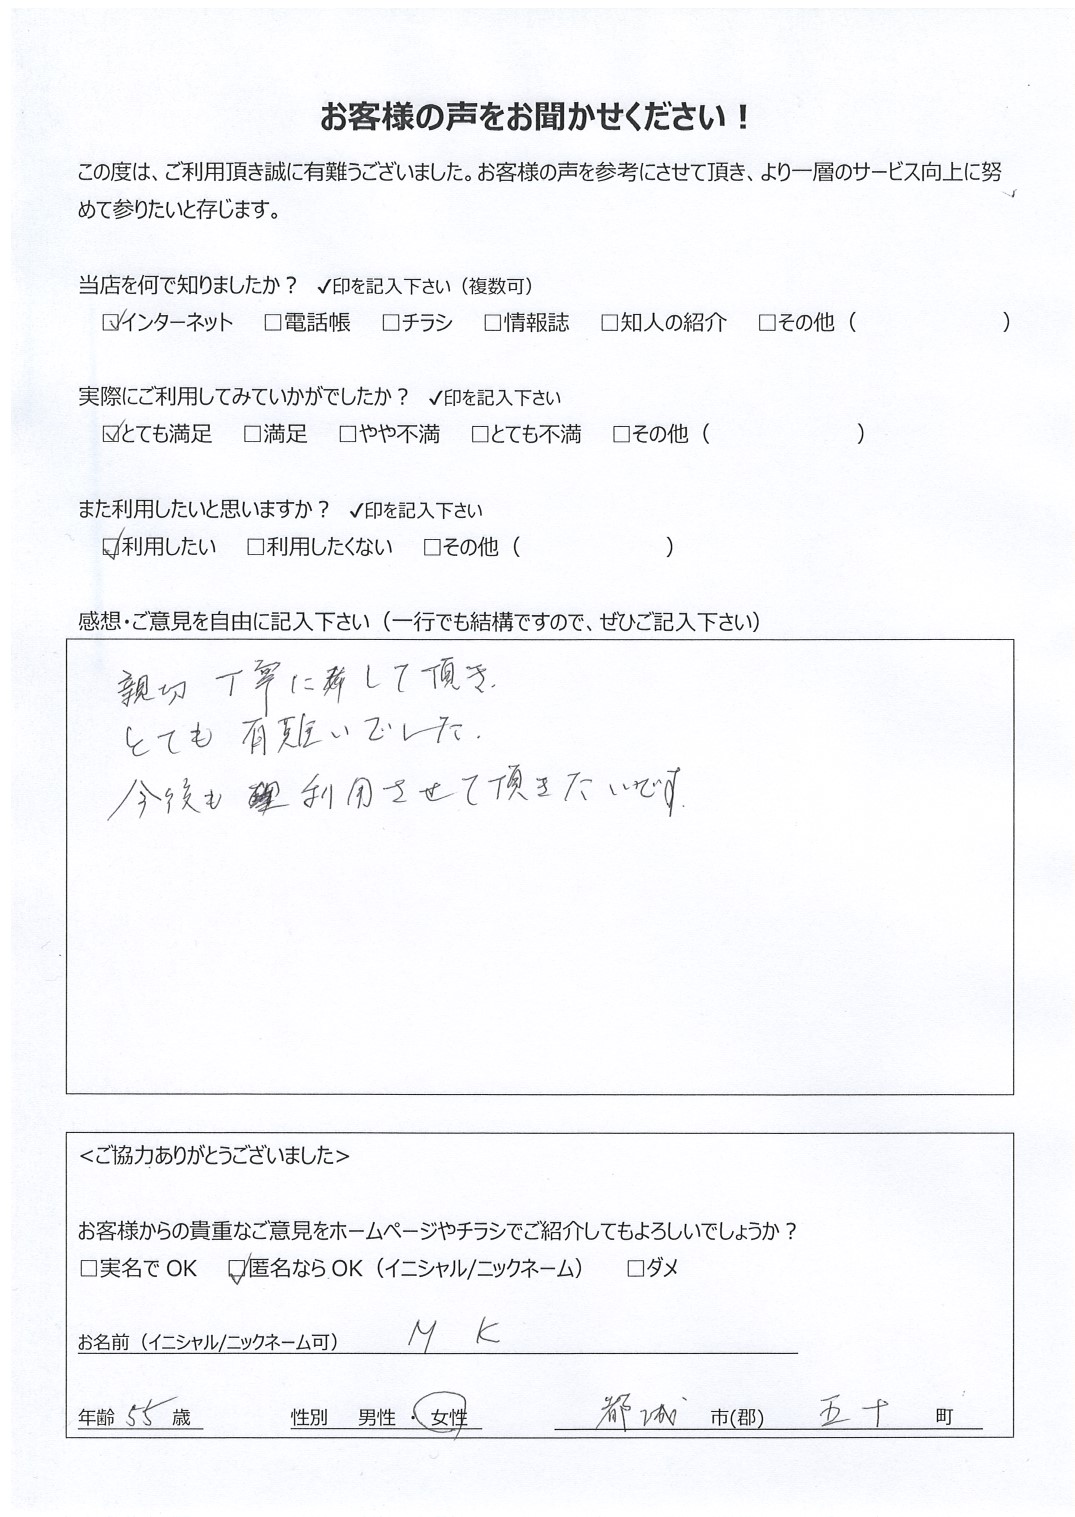 お客様の声をお聞かせください！
この度は、ご利用頂き誠に有難うございました。お客様の声を参考にさせて頂き、より一層のサービス向上に努
めて参りたいと存じます。
当店を何で知りましたか？ ✓印を記入下さい（複数可）
☑インターネット □電話帳 □チラシ □情報誌 □知人の紹介 □その他（ ）
実際にご利用してみていかがでしたか？ ✓印を記入下さい
☑とても満足 □満足 □やや不満 □とても不満 □その他（ ）
また利用したいと思いますか？ ✓印を記入下さい
☑利用したい □利用したくない □その他（ ）
感想・ご意見を自由に記入下さい（一行でも結構ですので、ぜひご記入下さい）
親切 丁寧に して頂き、
とても 有難いでした。
今後も 利用させて頂きたいです。
<ご協力ありがとうございました>
お客様からの貴重なご意見をホームページやチラシでご紹介してもよろしいでしょうか？
□実名で OK ☑匿名なら OK（イニシャル/ニックネーム） □ダメ
お名前（イニシャル/ニックネーム可） M K
年齢 55 歳 性別 男性 ・ 女性 都城 市(郡) 五十 町